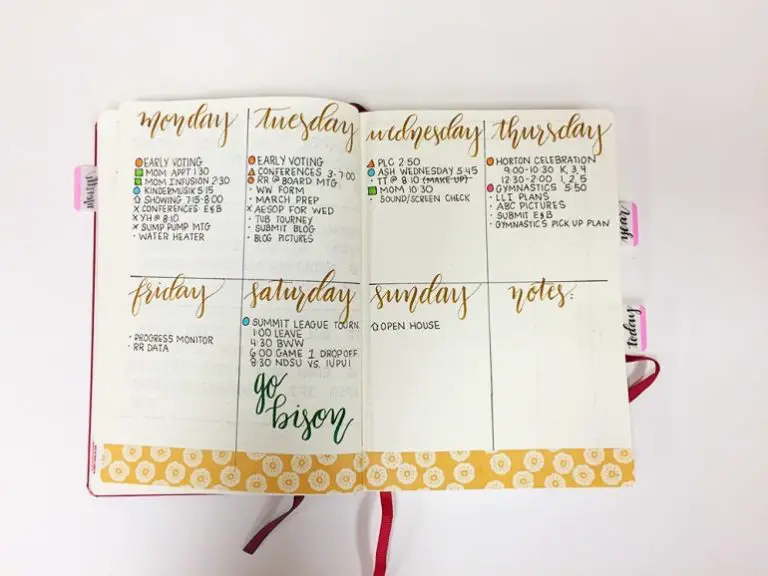 monday
EARLY VOTING
MOM APPT 1:30
MOM INFUSION 2:30
KINDERMUSIK 5:15
SHOWING 7:15-8:00
× CONFERENCES E&B
× YH @ 8:10
× SUMP PUMP MTG
· WATER HEATER
tuesday
EARLY VOTING
CONFERENCES 3-7:00
RR @ BOARD MTG
· WW FORM
· MARCH PREP
× AESOP FOR WED
· TUB TOURNEY
· SUBMIT BLOG
· BLOG PICTURES
wednesday
PLC 2:50
ASH WEDNESDAY 5:45
· TT @ 8:10 (MAKE-UP)
MOM 10:30
· SOUND/SCREEN CHECK
thursday
HORTON CELEBRATION
9:00-10:30 K, 3, 4
12:30-2:00 1, 2, 5
GYMNASTICS 5:50
· LLI PLANS
· ABC PICTURES
· SUBMIT E&B
· GYMNASTICS PICK UP PLAN
friday
· PROGRESS MONITOR
· RR DATA
saturday
SUMMIT LEAGUE TOURN.
1:00 LEAVE
4:30 BWW
6:00 GAME 1 DROPOFF
8:30 NDSU VS. IUPUI
go
bison
sunday
OPEN HOUSE
notes:
year
today